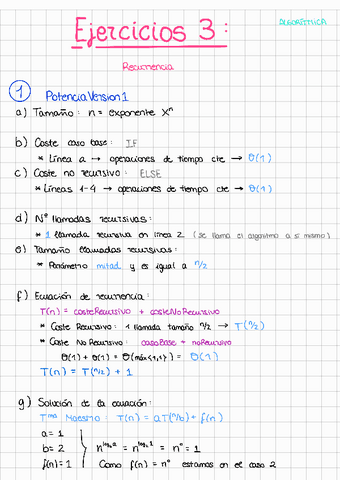 Ejercicios 3:
ALGORÍTMICA
Recurrencia
1 Potencia Version 1
a) Tamaño : n = exponente xⁿ
b) Coste caso base : IF
* Línea a → operaciones de tiempo cte → Θ(1)
c) Coste no recursivo : ELSE
* Líneas 1-4 → operaciones de tiempo cte → Θ(1)
d) Nº llamadas recursivas :
* 1 llamada recursiva en línea 2 (se llama el algoritmo a si mismo)
e) Tamaño llamadas recursivas :
* Parámetro mitad y es igual a n/2
f) Ecuación de recurrencia :
T(n) = coste Recursivo + coste No Recursivo
* Coste Recursivo : 1 llamada tamaño n/2 → T(n/2)
* Coste No Recursivo : caso Base + no Recursivo
Θ(1) + Θ(1) = Θ(máx<1,1>) = Θ(1)
T(n) = T(n/2) + 1
g) Solución de la ecuación :
Tma Maestro : T(n) = aT(n/b) + f(n)
a = 1
b = 2 n^log_b a = n^log_2 1 = n⁰ = 1
f(n) = 1 Como f(n) = n⁰ estamos en el caso 2